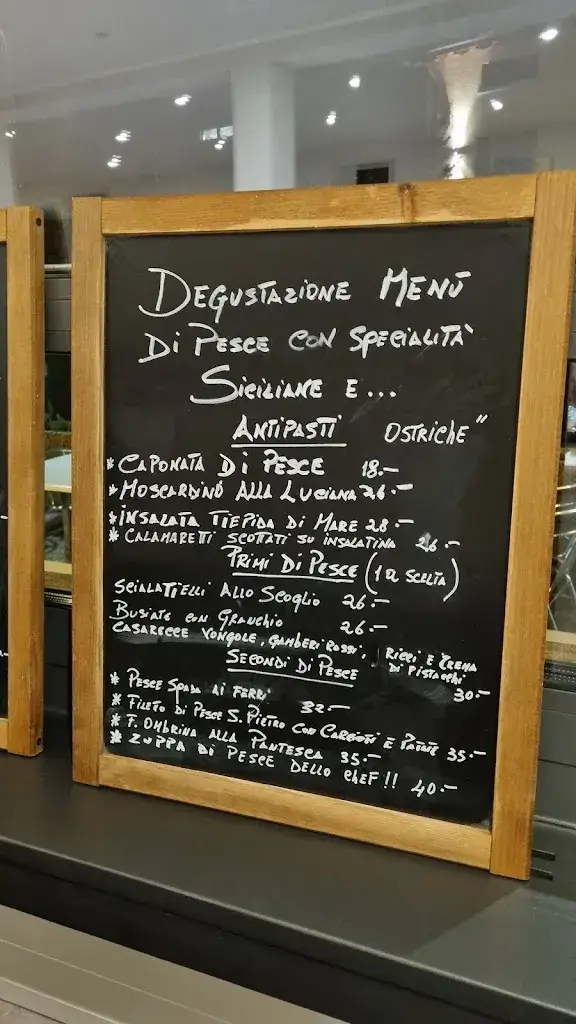 DEGUSTAZIONE MENÙ
DI PESCE CON SPECIALITÀ
SICILIANE E...
ANTIPASTI OSTRICHE"
* CAPONATA DI PESCE 18.-
* MOSCARDINO ALLA LUCIANA 26.-
* INSALATA TIEPIDA DI MARE 28.-
* CALAMARETTI SCOTTATI SU INSALATINA 26.-
PRIMI DI PESCE (1 A SCELTA)
SCIALATIELLI ALLO SCOGLIO 26.-
BUSIATE CON GRANCHIO 26.-
CASARECCE VONGOLE, GAMBERI ROSSI, RICCI E CREMA
DI PISTACCHI
30.-
SECONDI DI PESCE
* PESCE SPADA AI FERRI 32.-
* FILETO DI PESCE S. PIETRO CON CARCIOFI E PATATE 35.-
* F. OMBRINA ALLA PANTESCA 35.-
* ZUPPA DI PESCE DELLO CHEF!! 40.-